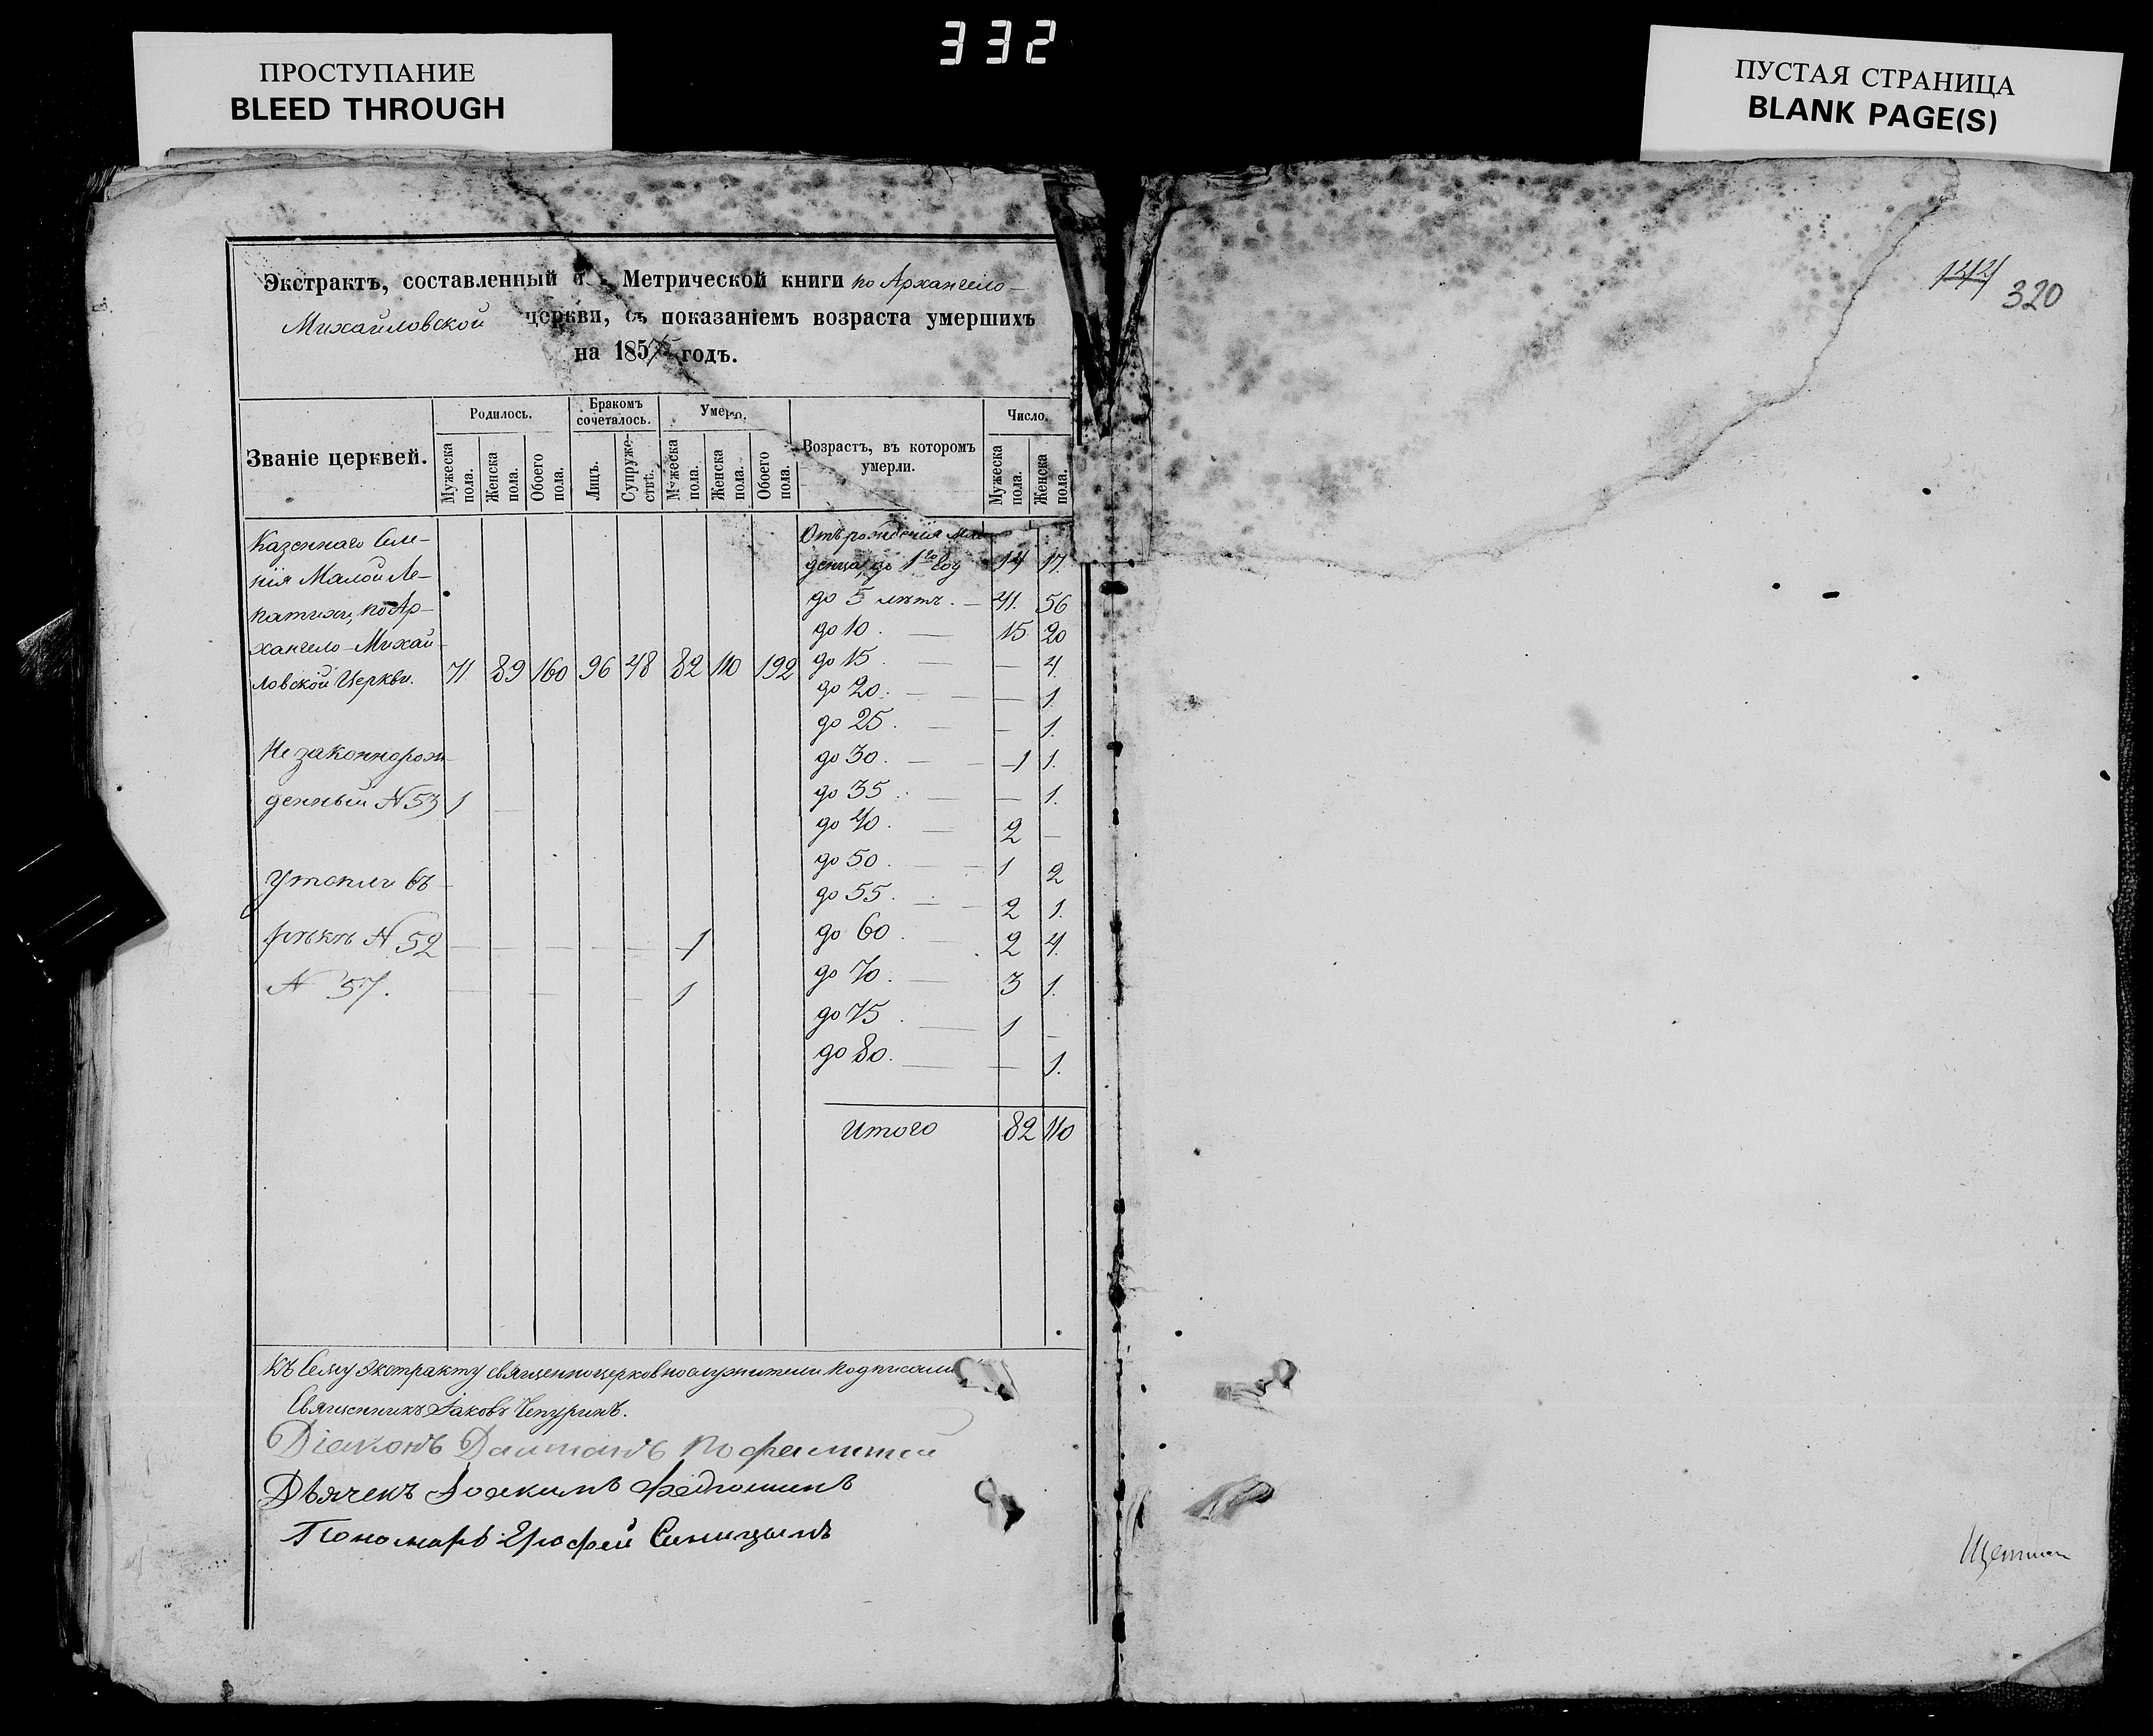 332
ПРОСТУПАНИЕ
BLEED THROUGH
ПУСТАЯ СТРАНИЦА
BLANK PAGE(S)
Экстрактъ, составленный Метрической книги по Архангело-
Михайловской церкви, съ показаніемъ возраста умершихъ
на 1857 годъ.
320
Званіе церквей.
Родилось.
Бракомъ сочеталось.
Умерло.
Возрастъ, въ которомъ умерли.
Число.
Мужеска пола.
Женска пола.
Обоего пола.
Лицъ.
Супружествъ.
Мужеска пола.
Женска пола.
Обоего пола.
Мужеска пола.
Женска пола.
Казеннаго Селе-
нія Малой Ле-
патихи, по Ар-
хангело-Михай-
ловской Церкви. 71 89 160 96 48 82 110 192
Незаконнорож-
денный N 53 1 —
Утопли въ
рѣкѣ N 52 1
N 57. 1
Отъ рожденія мла-
денца до 1го году 14 17.
до 5 лѣтъ. — 41. 56
до 10. — 15 20
до 15. — — 4.
до 20. — — 1.
до 25. — — 1.
до 30. — 1 1.
до 35. — — 1.
до 40. — 2 —
до 50. — 1 2
до 55. — 2 1.
до 60. — 2 4.
до 70. — 3 1.
до 75. — 1 —
до 80. — — 1.
Итого 82 110
Къ Сему экстракту священноцерковнослужители подписали
Священникъ Іаковъ Чепуринъ.
Діаконъ
Дьячекъ Іоакимъ
Пономарь Ерофей Синицынъ